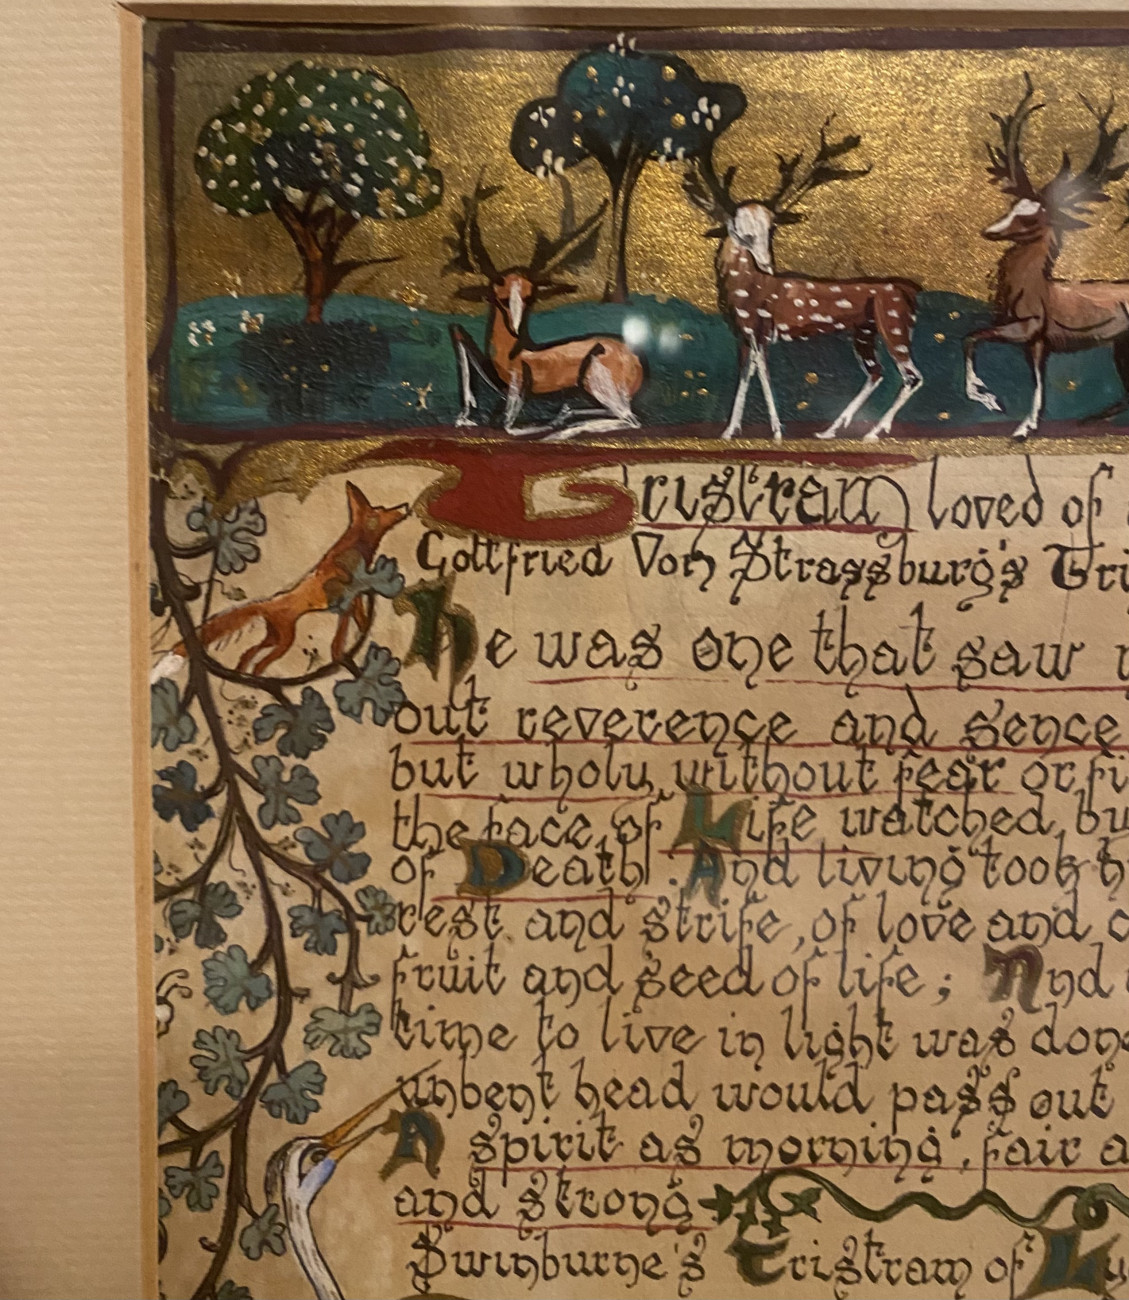 Tristram loved of
Gottfried Von Strassburg's Tri
He was one that saw
out reverence and sence
but wholy without fear or fi
the face of Life watched bu
of Death. And living took h
rest and strife, of love and
fruit and seed of life; And
time to live in light was done
unbent head would pass out
A spirit as morning, fair a
and strong
Swinburne's Tristram of Ly